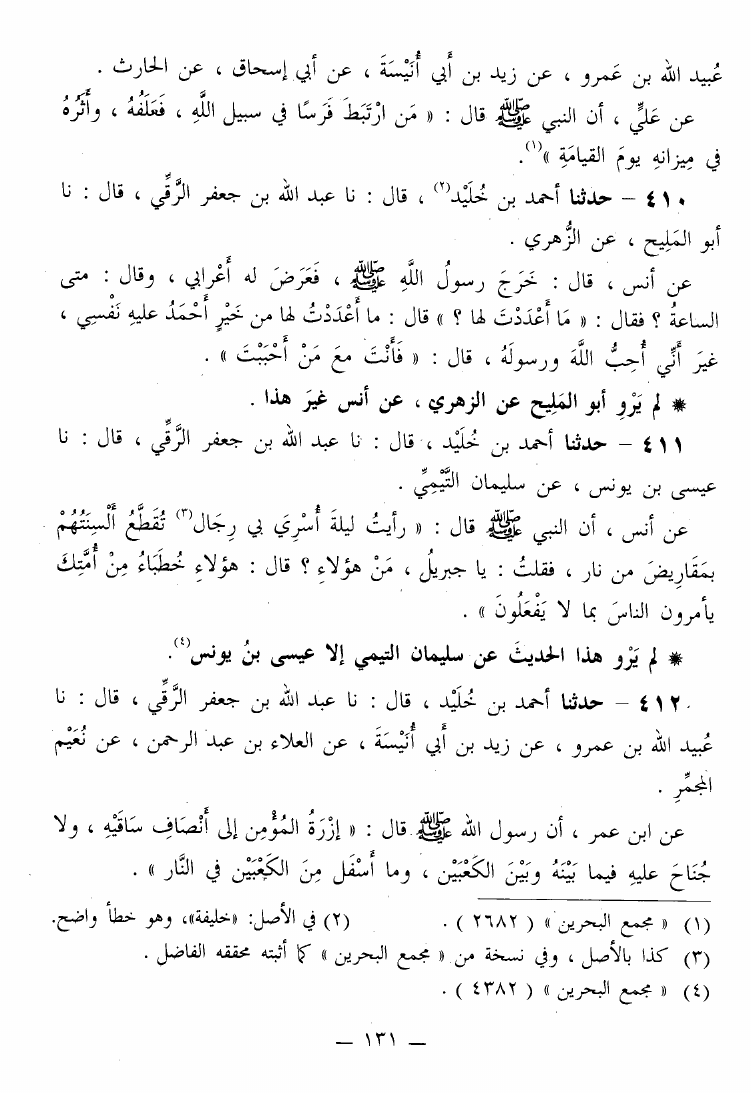 عُبيد الله بن عَمرو ، عن زيد بن أبي أُنَيْسَةَ ، عن أبي إسحاق ، عن الحارث .
عن عَليٍّ ، أن النبي ﷺ قال : « مَن ارْتَبَطَ فَرَسًا في سبيل اللَّهِ ، فَعَلَفُهُ ، وأَثَرُهُ
في مِيزانهِ يومَ القيامَةِ »(١).
٤١٠ – حدثنا أحمد بن خُلَيْد(٢) ، قال : نا عبد الله بن جعفر الرَّقِّي ، قال : نا
أبو المَلِيح ، عن الزُّهري .
عن أنس ، قال : خَرَجَ رسولُ اللَّهِ ﷺ ، فَعَرَضَ له أَعْرابي ، وقال : متى
الساعةُ ؟ فقال : « مَا أَعْدَدْتَ لها ؟ » قال : ما أَعْدَدْتُ لها من خَيْرٍ أَحْمَدُ عليهِ نَفْسِي ،
غيرَ أَنِّي أُحِبُّ اللَّهَ ورسولَهُ ، قال : « فَأَنْتَ معَ مَنْ أَحْبَبْتَ » .
* لم يَرْوِ أبو المَليح عن الزهري ، عن أنس غيرَ هذا .
٤١١ – حدثنا أحمد بن خُلَيْد ، قال : نا عبد الله بن جعفر الرَّقِّي ، قال : نا
عيسى بن يونس ، عن سليمان التَّيْمِيِّ .
عن أنس ، أن النبي ﷺ قال : « رأيتُ ليلةَ أُسْرِيَ بي رِجَال(٣) تُقَطَّعُ أَلْسِنَتُهُمْ
بمَقَارِيضَ من نار ، فقلتُ : يا جبريلُ ، مَنْ هؤلاءِ ؟ قال : هؤلاءِ خُطَبَاءُ مِنْ أُمَّتِكَ
يأمرون الناسَ بما لا يَفْعَلُونَ » .
* لم يَرْو هذا الحديثَ عن سليمان التيمي إلا عيسى بنُ يونس(٤).
٤١٢ – حدثنا أحمد بن خُلَيْد ، قال : نا عبد الله بن جعفر الرَّقِّي ، قال : نا
عُبيد الله بن عمرو ، عن زيد بن أبي أُنَيْسَةَ ، عن العلاء بن عبد الرحمن ، عن نُعَيْم
المجمِّرِ .
عن ابن عمر ، أن رسول الله ﷺ قال : « إِزْرَةُ المُؤْمِن إلى أَنْصَافِ سَاقَيْهِ ، ولا
جُنَاحَ عليهِ فيما بَيْنَهُ وبَيْنَ الكَعْبَيْن ، وما أَسْفَل مِنَ الكَعْبَيْن في النَّار » .
(١) « مجمع البحرين » ( ٢٦٨٢ ) . (٢) في الأصل: «خليفة»، وهو خطأ واضح.
(٣) كذا بالأصل ، وفي نسخة من « مجمع البحرين » كما أثبته محققه الفاضل .
(٤) « مجمع البحرين » ( ٤٣٨٢ ) .
– ١٣١ –